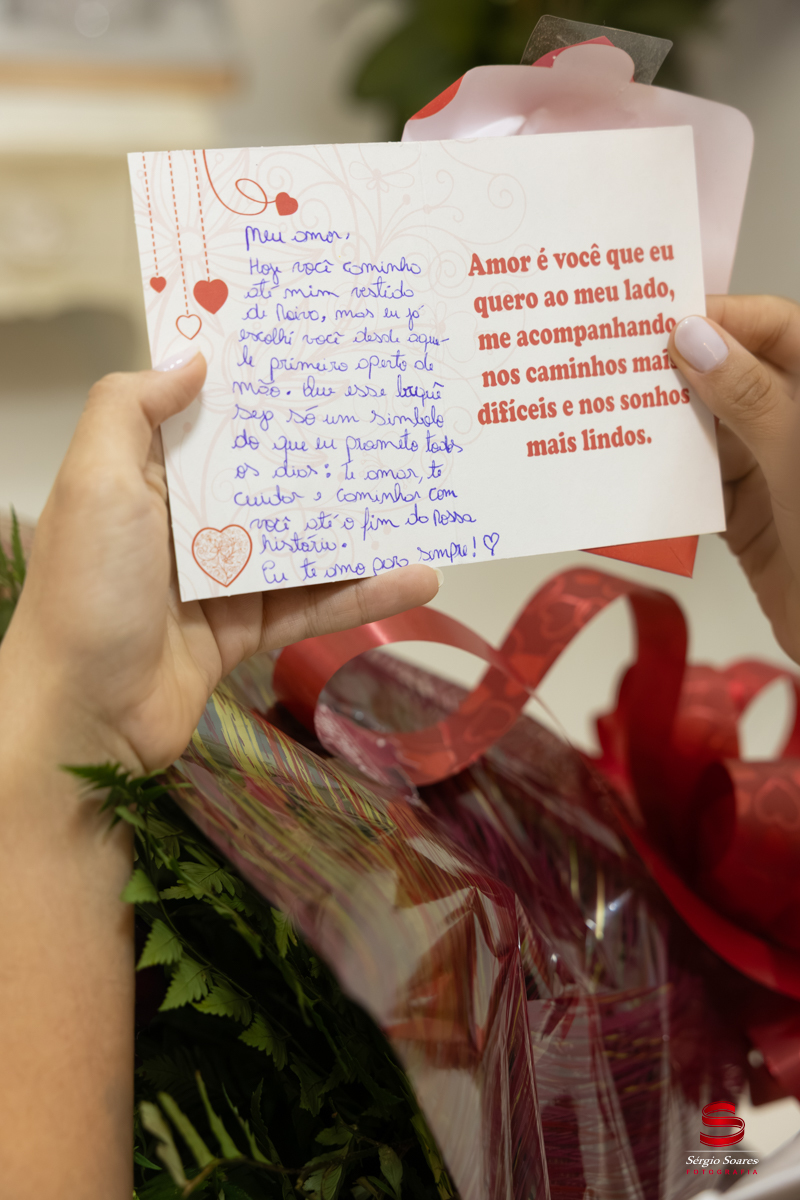 Meu amor,
Hoje você caminha
até mim vestida
de noiva, mas eu já
escolhi você desde aque-
le primeiro aperto de
mão. Que esse buquê
seja só um símbolo
do que eu prometo todos
os dias: te amar, te
cuidar e caminhar com
você até o fim da nossa
história.
Eu te amo para sempre! ♡
Amor é você que eu
quero ao meu lado,
me acompanhando
nos caminhos mais
difíceis e nos sonhos
mais lindos.
S
Sérgio Soares
FOTOGRAFIA